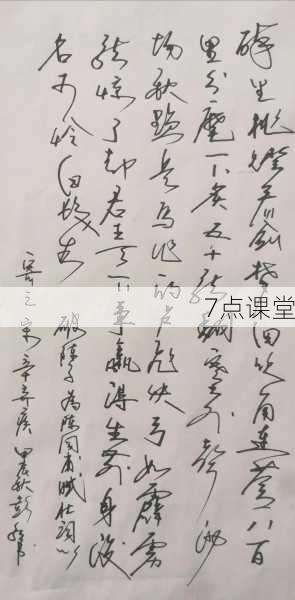 醉里挑燈看剑梦回吹角連营八百
里分麾下炙五十弦翻塞外声沙
场秋點兵马作的卢飛快弓如霹雳
弦惊了却君王天下事赢得生前身後
名可怜白发生
破阵子为陈同甫赋壮词以
寄之宋辛弃疾甲辰秋彭
7点课堂